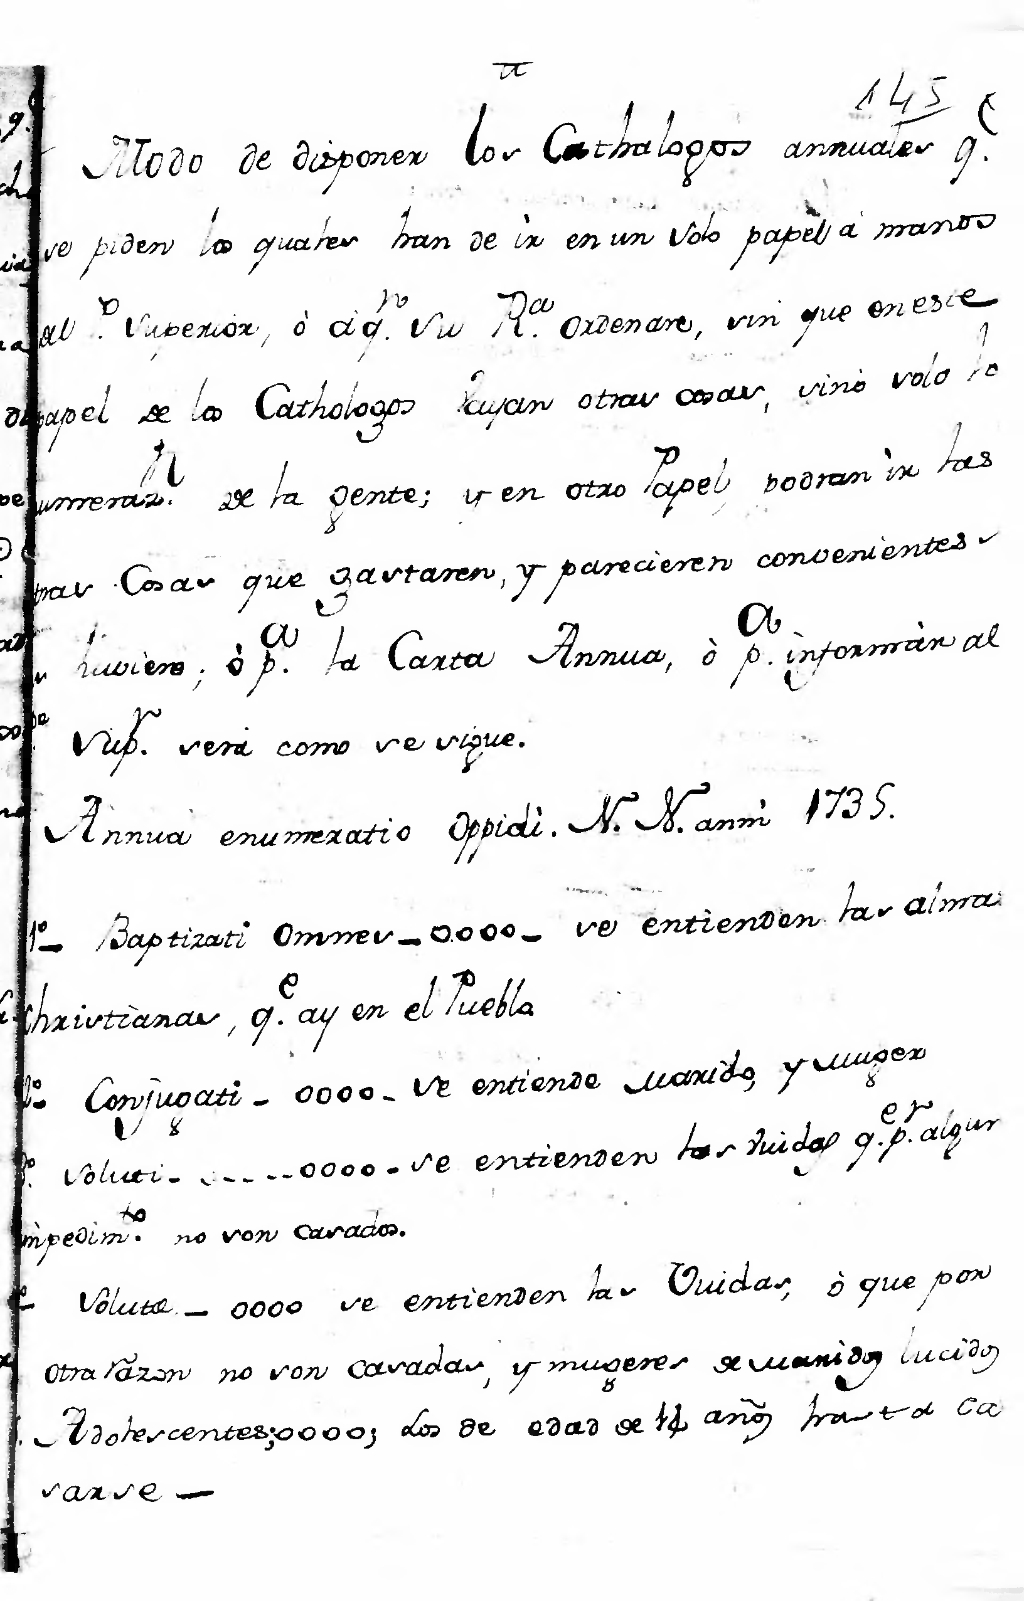 145
Modo de disponer los Cathalogos annuales q.e
se piden los quales han de ir en un solo papel à manos
al P. Superior, ò à q.n Su R.a ordenare, sin que en este
papel de los Cathologos vayan otras cosas, sinò solo la
numeraz.n de la gente; y en otro Papel, podran ir las
otras Cosas que gastaren, y parecieren convenientes
huviere; ò p.a la Carta Annua, ò p.a informar al
Sup.r serà como se sigue.
Annua enumeratio Oppidi. N. N. anni 1735.
1º– Baptizati Omnes – 0.000 – se entienden las almas
Christianas, q.e ay en el Pueblo
2º– Conjugati – 0000 – Se entiende marido, y muger
3º. Soluti - - - - - 0000 - se entienden los viudos q.e p.r algun
impedim.to no son casados.
Solutæ – 0000 se entienden las Viudas, ò que por
otra razon no son casadas, y mugeres de maridos lucidos
Adolescentes; 0000; Los de edad de 14 años hasta ca
sarse –